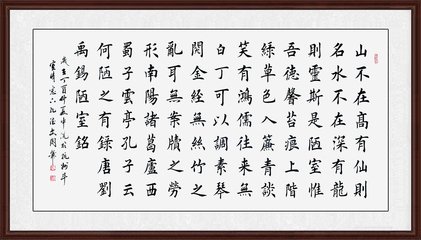 山不在高有仙則
名水不在深有龍
則靈斯是陋室惟
吾德馨苔痕上階
綠草色入簾青談
笑有鴻儒往來無
白丁可以調素琴
閱金經無絲竹之
亂耳無案牘之勞
形南陽諸葛廬西
蜀子雲亭孔子云
何陋之有錄唐劉
禹錫陋室銘
丁酉